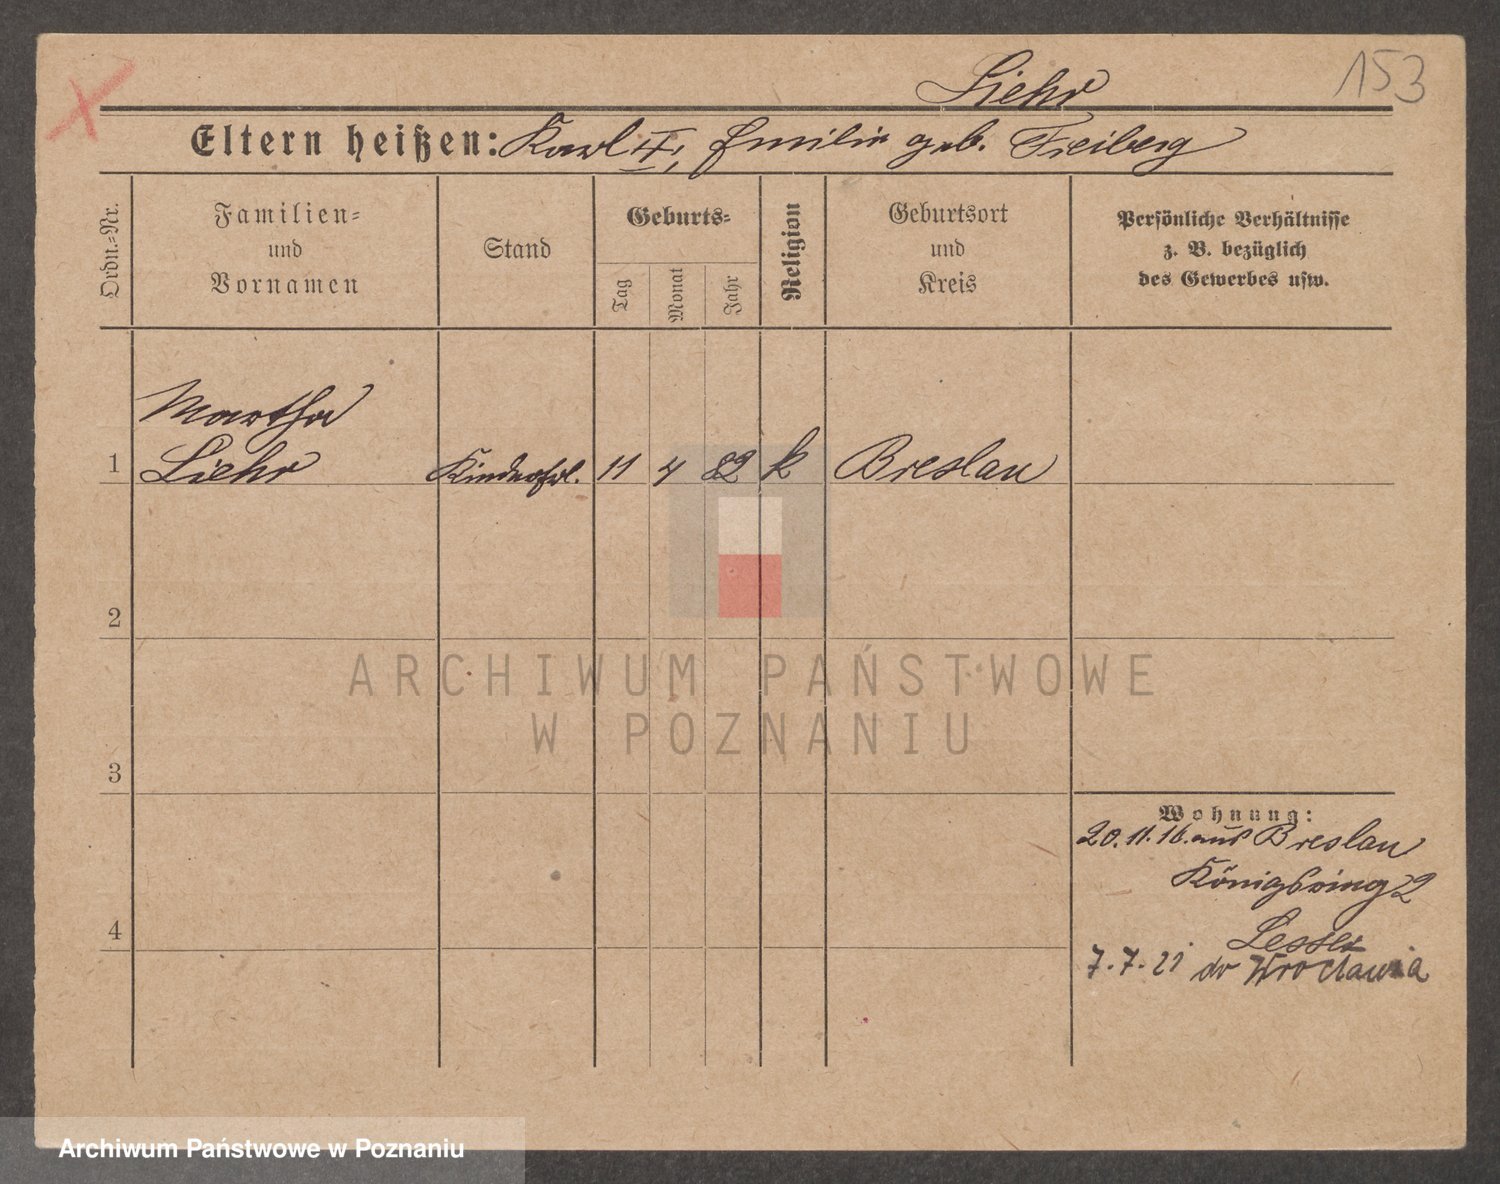 Liehr
153
Eltern heißen: Karl ✝, Emilie geb. Freiberg
Ordn.-Nr.
Familien-
und
Vornamen
Stand
Geburts-
Tag
Monat
Jahr
Religion
Geburtsort
und
Kreis
Persönliche Verhältnisse
z. B. bezüglich
des Gewerbes usw.
Martha
1 Liehr Kinderfrl. 11 4 82 k Breslau
2
ARCHIWUM PAŃSTWOWE
W POZNANIU
3
Wohnung:
20.11.16. aus Breslau
Königsring 2
4
Lesser
7.7.21 do Wrocławia
Archiwum Państwowe w Poznaniu